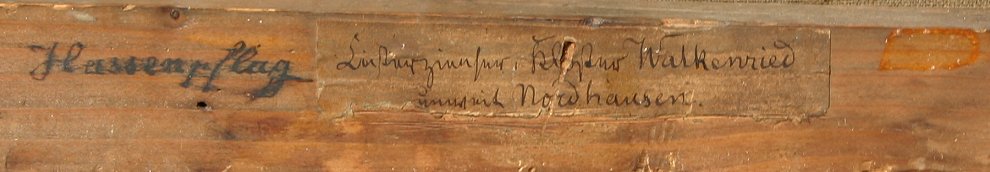 Hassenpflug
Cisterzienser, Kloster Walkenried
unweit Nordhausen.